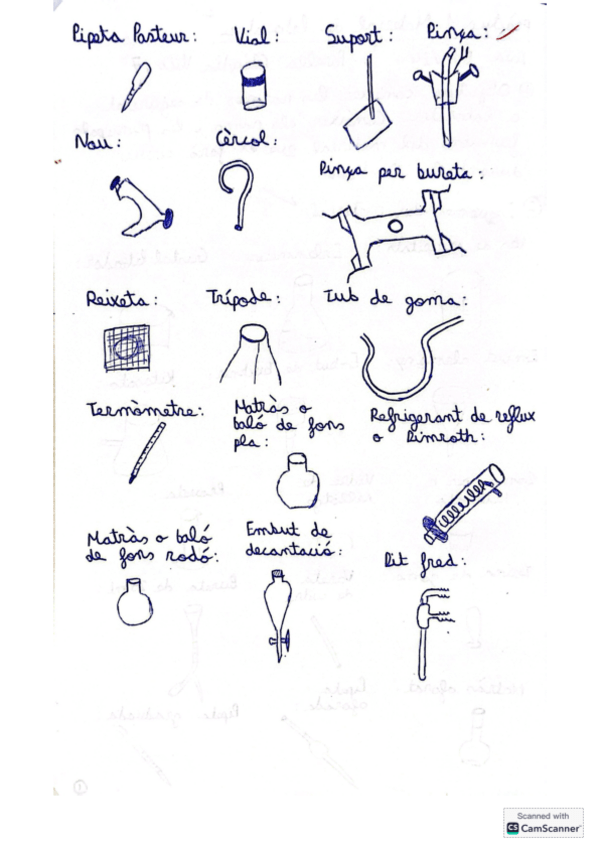 Pipeta Pasteur: Vial: Suport: Pinça:
Nou: Cèrcol:
Pinça per bureta:
Reixeta: Trípode: Tub de goma:
Termòmetre:
Matràs o
baló de fons
pla:
Refrigerant de reflux
o Dimroth:
Matràs o baló
de fons rodó:
Embut de
decantació:
Dit fred:
1
Scanned with
CS CamScanner